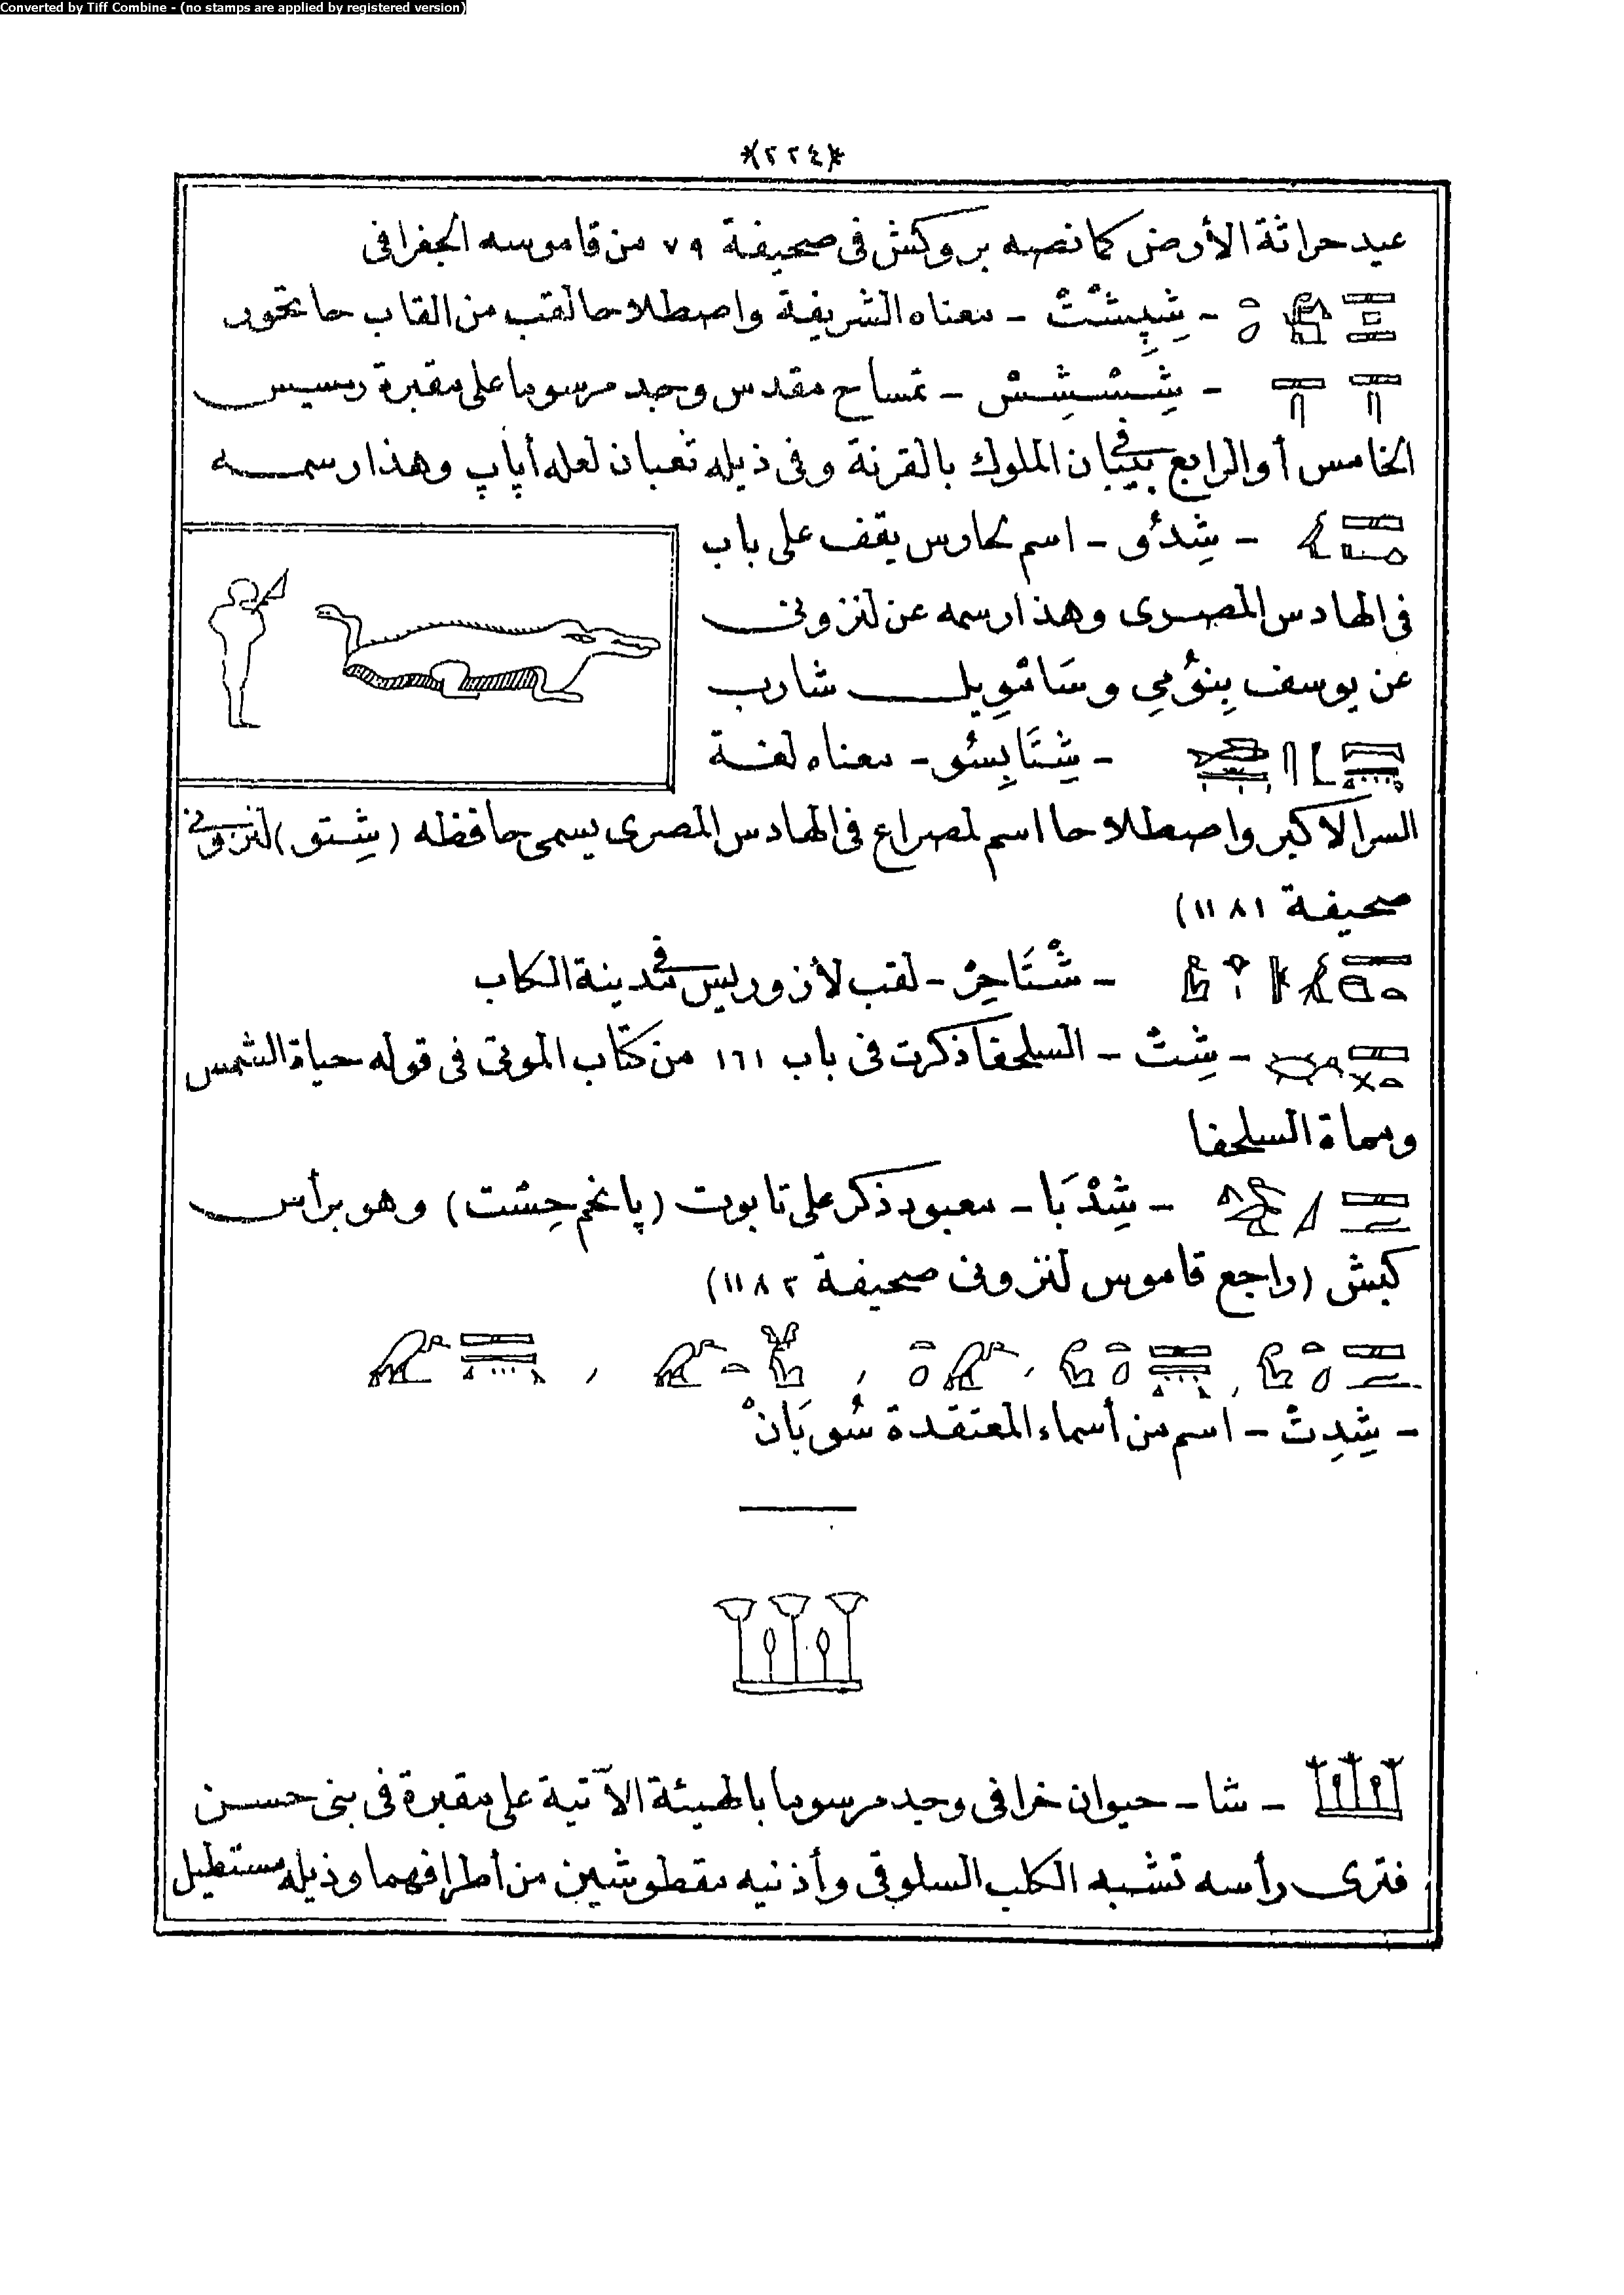 Converted by Tiff Combine - (no stamps are applied by registered version)
*(٢٢٤)*
عيد حراثة الأرض كما نصه بروكش فى صحيفة ٧٩ من قاموسه الجغرافى
- شِپِشْتْ - معناه الشريفة واصطلاحا لقب من القاب حاتحور
- شِسْشِسْ - تمساح مقدس وجد مرسوما على مقبرة رمسيس
الخامس أو الرابع فى بيبان الملوك بالقرنة وفى ذيله ثعبان لعله أپاپ وهذا رسمه
- شِدئو - اسم لحارس يقف على باب
فى الهادس المصرى وهذا رسمه عن لنزونى
عن يوسف بِنوُمِي وسَامْوِيل شارب
- شِتَابِسُو - معناه لغة
السر الاكبر واصطلاحا اسم لمصراع فى الهادس المصرى يسمى حافظه (شِتو) لنزونى
صحيفة ١١٨١)
- شْتَاحِرْ - لقب لأزوريس فى مدينة الكاب
- شِتْ - السلحفا ذكرت فى باب ١٦١ من كتاب الموتى فى قوله حياة الشمس
ومماة السلحفا
- شِدْبَا - معبود ذكر على تابوت (پانخم حِسْت) وهو برأس
كبش (راجع قاموس لنزونى صحيفة ١١٨٢)
- شِدِتْ - اسم من أسماء المعتقدة سُوبَانْ
- شا - حيوان خرافى وجد مرسوما بالهيئة الآتية على مقبرة فى بنى حسن
فترى رأسه تشبه الكلب السلوقى وأذنيه مقطوشين من أطرافهما وذيله مستطيل